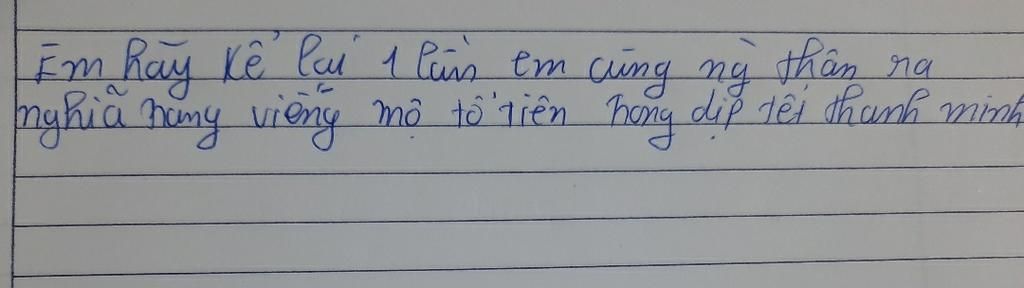 Em hãy kể lại 1 lần em cùng ng` thân ra
nghĩa trang viếng mộ tổ tiên trong dịp tết thanh minh